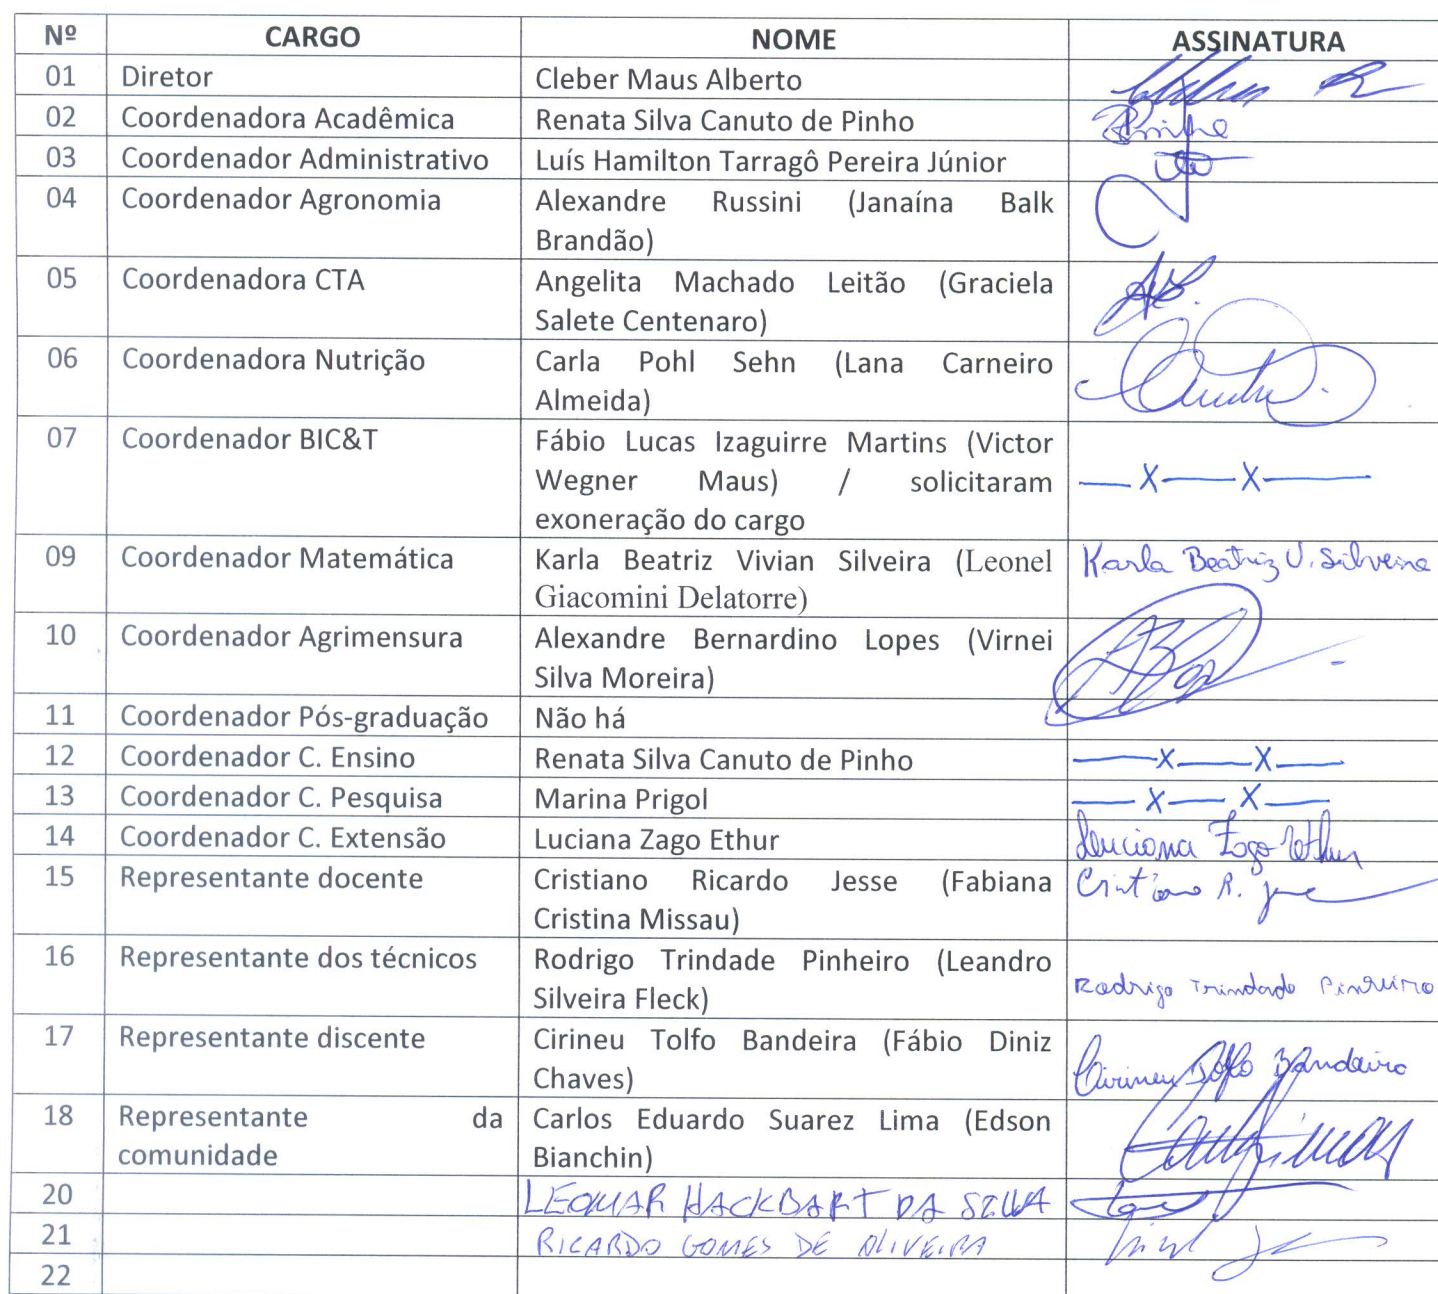 Nº CARGO NOME ASSINATURA
01 Diretor Cleber Maus Alberto
02 Coordenadora Acadêmica Renata Silva Canuto de Pinho
03 Coordenador Administrativo Luís Hamilton Tarragô Pereira Júnior
04 Coordenador Agronomia Alexandre Russini (Janaína Balk
Brandão)
05 Coordenadora CTA Angelita Machado Leitão (Graciela
Salete Centenaro)
06 Coordenadora Nutrição Carla Pohl Sehn (Lana Carneiro
Almeida)
07 Coordenador BIC&T Fábio Lucas Izaguirre Martins (Victor
Wegner Maus) / solicitaram — X — X —
exoneração do cargo
09 Coordenador Matemática Karla Beatriz Vivian Silveira (Leonel Karla Beatriz V. Silveira
Giacomini Delatorre)
10 Coordenador Agrimensura Alexandre Bernardino Lopes (Virnei
Silva Moreira)
11 Coordenador Pós-graduação Não há
12 Coordenador C. Ensino Renata Silva Canuto de Pinho — X — X —
13 Coordenador C. Pesquisa Marina Prigol — X — X —
14 Coordenador C. Extensão Luciana Zago Ethur Luciana Zago Ethur
15 Representante docente Cristiano Ricardo Jesse (Fabiana Cristiano R. Jesse
Cristina Missau)
16 Representante dos técnicos Rodrigo Trindade Pinheiro (Leandro
Silveira Fleck) Rodrigo Trindade Pinheiro
17 Representante discente Cirineu Tolfo Bandeira (Fábio Diniz
Chaves) Cirineu Tolfo Bandeira
18 Representante da Carlos Eduardo Suarez Lima (Edson
comunidade Bianchin)
20 LEOMAR HACKBART DA SILVA
21 RICARDO GOMES DE OLIVEIRA
22